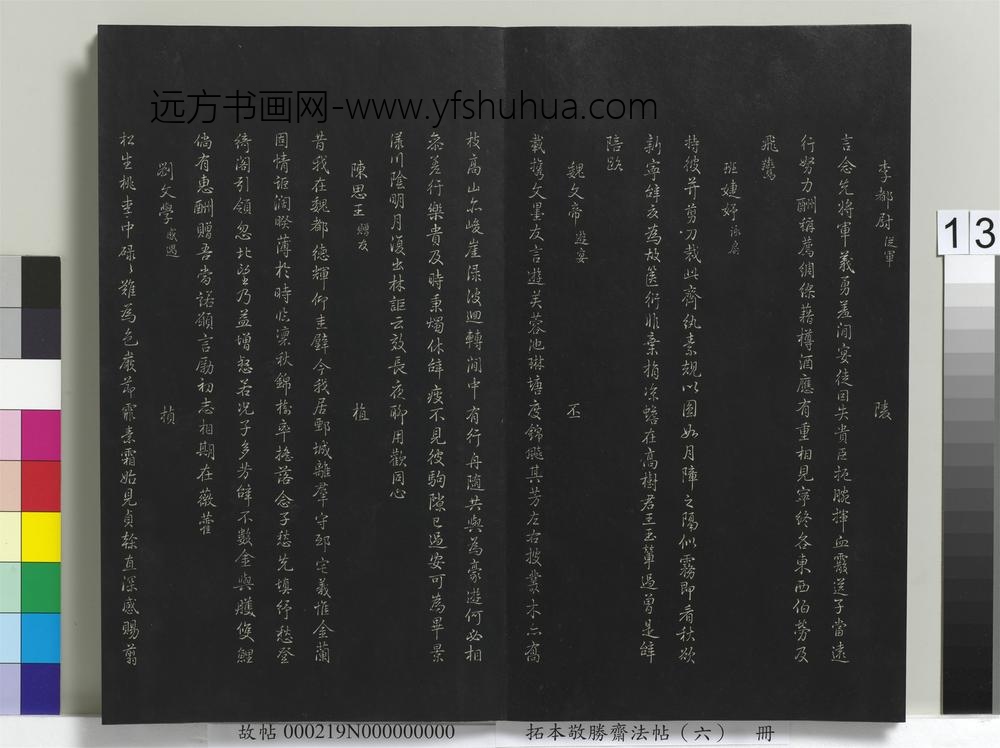 远方书画网-www.yfshuhua.com
13
李都尉 從軍 陵
言念先將軍義勇羞閒宴徒因失貴臣扼腕揮血霰送子當遠
行努力酬稱薦綢繆藉樽酒應有重相見寧終各東西伯勞及
飛鷰
班婕妤 詠扇
持彼并剪刀裁此齊紈素規以圓如月障之隔似霧即看秋欲
新寧辭友為故篋衍非棄捐涼蟾在高樹君王玉輦過曾是辭
陪
魏文帝 遊宴 丕
載攜文墨友言遊芙蓉池琳塘度錦颸其芳左右披叢木亦喬
枝高山尔峻崖深波迴轉間中有行舟隨共與為豪遊何必相
參差行樂貴及時秉燭休辭疲不見彼駒隙已過安可為畢景
漾川陰明月復出林詎云效長夜聊用歡同心
陳思王 贈友 植
昔我在魏都德輝仰圭璧今我居鄄城離羣守邸宅義惟金蘭
固情詎闊睽薄於時凜秋錦檢卒捲落念子愁先填紓愁登
綺閣引領忽北望乃益增怒若況子多芳辭不數金與雘雙鯉
倘有惠酬贈吾當諾願言勵初志相期在薇藿
劉文學 感遇 楨
松生桃李中碌碌難為色嚴節霏素霜始見貞榦直深感賜翦
故帖 000219N000000000 拓本敬勝齋法帖（六） 冊